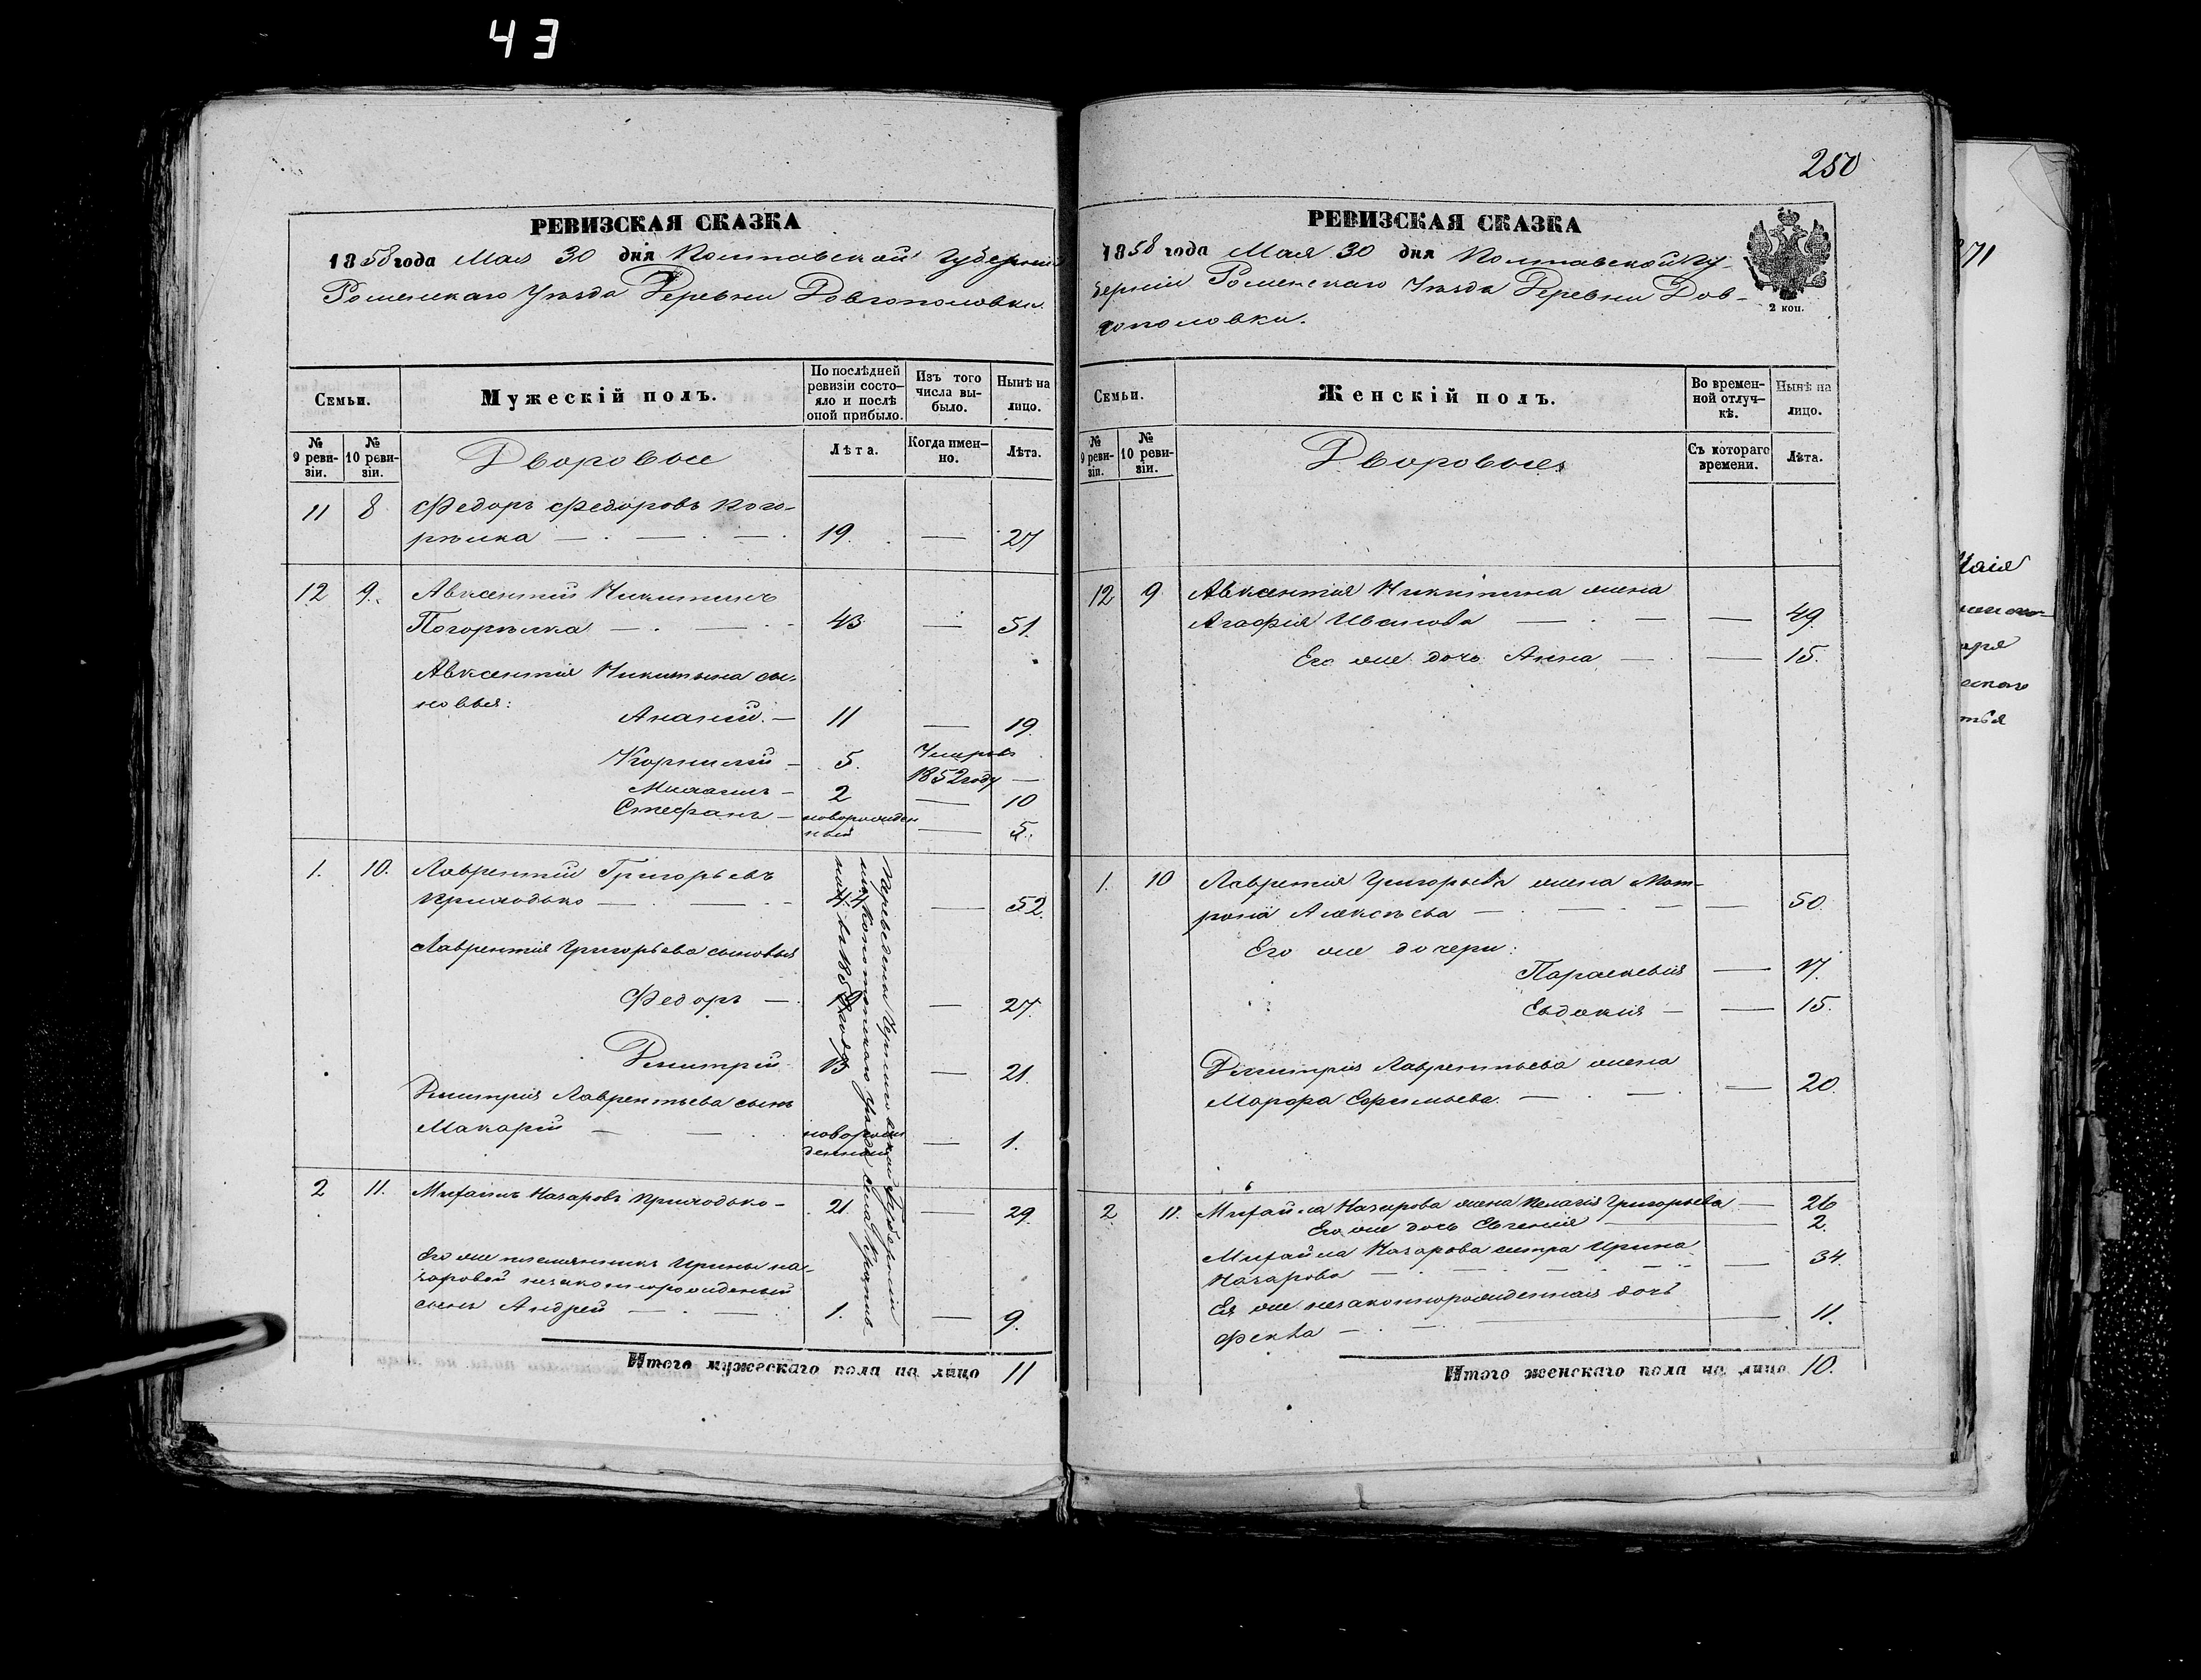 43
250
РЕВИЗСКАЯ СКАЗКА
1858 года Мая 30 дня Полтавской Губерніи
Роменскаго Уѣзда Деревни Довгополовки.
Семьи.
Мужескій полъ.
По послѣдней ревизіи состо-яло и послѣ оной прибыло.
Изъ того числа вы-было.
Нынѣ на лицо.
№ 9 реви-зіи.
№ 10 реви-зіи.
Дворовые
Лѣта.
Когда имен-но.
Лѣта.
11 8 Федоръ Федоровъ Пого-
рѣлка 19. — 27
12 9. Авксентий Никитинъ
Погорѣлка 43 — 51.
Авксентія Никитина сы-
новья:
Ананій. — 11 — 19.
Корнилий — 5. Умеръ
1852 году —
Михаилъ — 2 — 10
Стефанъ — новорожден
ный — 5.
1. 10. Лаврентий Григорьевъ
Приходько 44 — 52.
Лаврентія Григорьева сыновья
Федоръ — 19 — 27.
Дмитрій 13 — 21.
Дмитрія Лаврентьева сынъ
Макарій новорож
денный — 1.
2 11. Михаилъ Назаровъ Приходько — 21. — 29.
Его же племянникъ Ирины На-
заровой незаконнорожденный
сынъ Андрей 1. — 9.
Переведены Черниговской Губерніи
Конотопскаго уѣзда села
въ 185 году
Итого мужескаго пола на лицо 11
РЕВИЗСКАЯ СКАЗКА
1858 года Мая 30 дня Полтавской Гу-
берніи Роменскаго Уѣзда Деревни Дов-
гополовки.
2 коп.
Семьи.
Женскій полъ.
Во времен-ной отлуч-кѣ.
Нынѣ на лицо.
№ 9 реви-зіи.
№ 10 реви-зіи.
Дворовые
Съ котораго времени.
Лѣта.
12 9 Авксентія Никитина жена
Агафія Иванова — 49.
Его же дочь Анна — 15.
1. 10 Лаврентія Григорьева жена Мат-
рона Алексѣева — 50.
Его же дочери:
Параскевія — 17.
Евдокія — 15.
Дмитрія Лаврентьева жена
Марфа Ефимьева. — 20.
2 11. Михайла Назарова жена Пелагія Григорьева — 26
Его же дочь Евгенія — 2.
Михайла Назарова сестра Ирина
Назарова — 34.
Ея же незаконнорожденная дочь
Фекла — 11.
Итого женскаго пола на лицо 10.